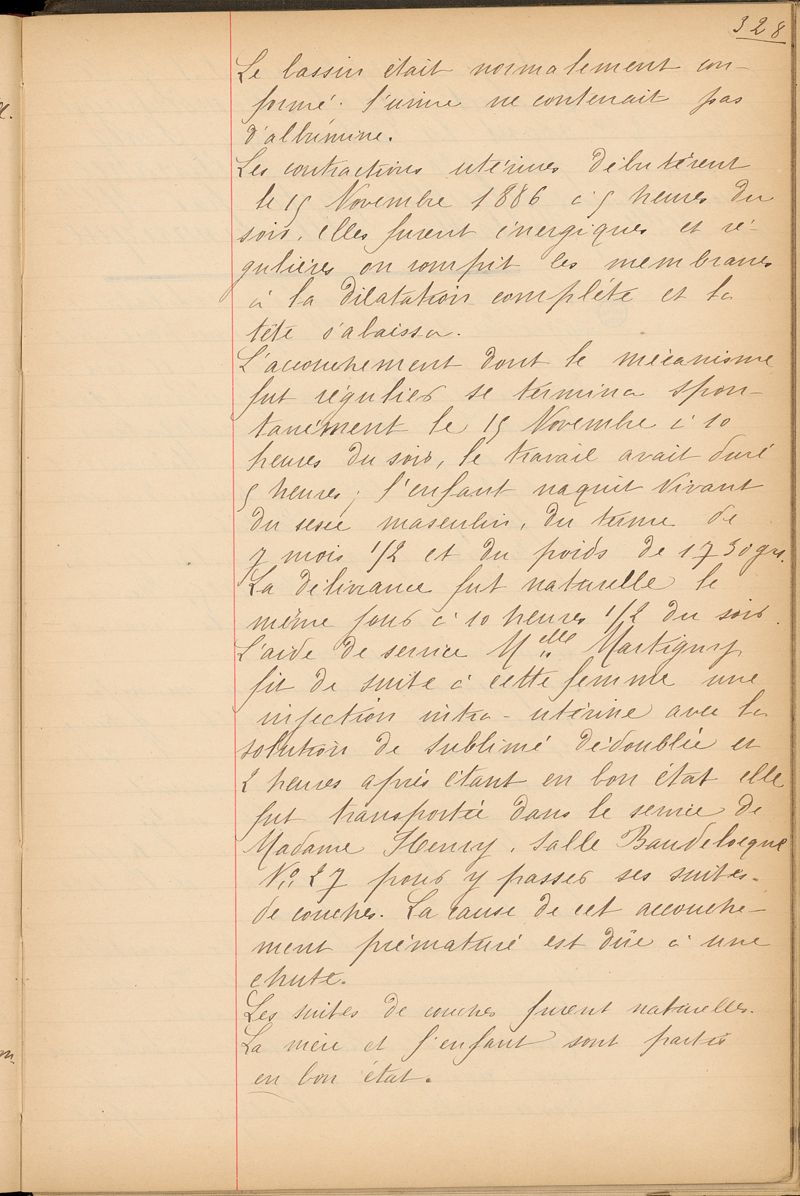 328
Le bassin était normalement con-
formé. l'urine ne contenait pas
d'albumine.
Les contractions utérines débutèrent
le 15 Novembre 1886 à 5 heures du
soir, elles furent énergiques et ré-
gulières on rompit les membranes
à la dilatation complète et la
tête s'abaissa.
L'accouchement dont le mécanisme
fut régulier se termina spon-
tanément le 15 Novembre à 10
heures du soir, le travail avait duré
5 heures; l'enfant naquit vivant
du sexe masculin, du terme de
7 mois 1/2 et du poids de 1730 grs.
La délivrance fut naturelle le
même jour à 10 heures 1/2 du soir.
L'aide de service Melle Martigny
fit de suite à cette femme une
injection intra-utérine avec la
solution de sublimé dédoublée et
2 heures après étant en bon état elle
fut transportée dans le service de
Madame Henry, salle Baudelocque
No 27 pour y passer ses suites
de couches. La cause de cet accouche-
ment prématuré est dûe à une
chute.
Les suites de couches furent naturelles.
La mère et l'enfant sont partis
en bon état.